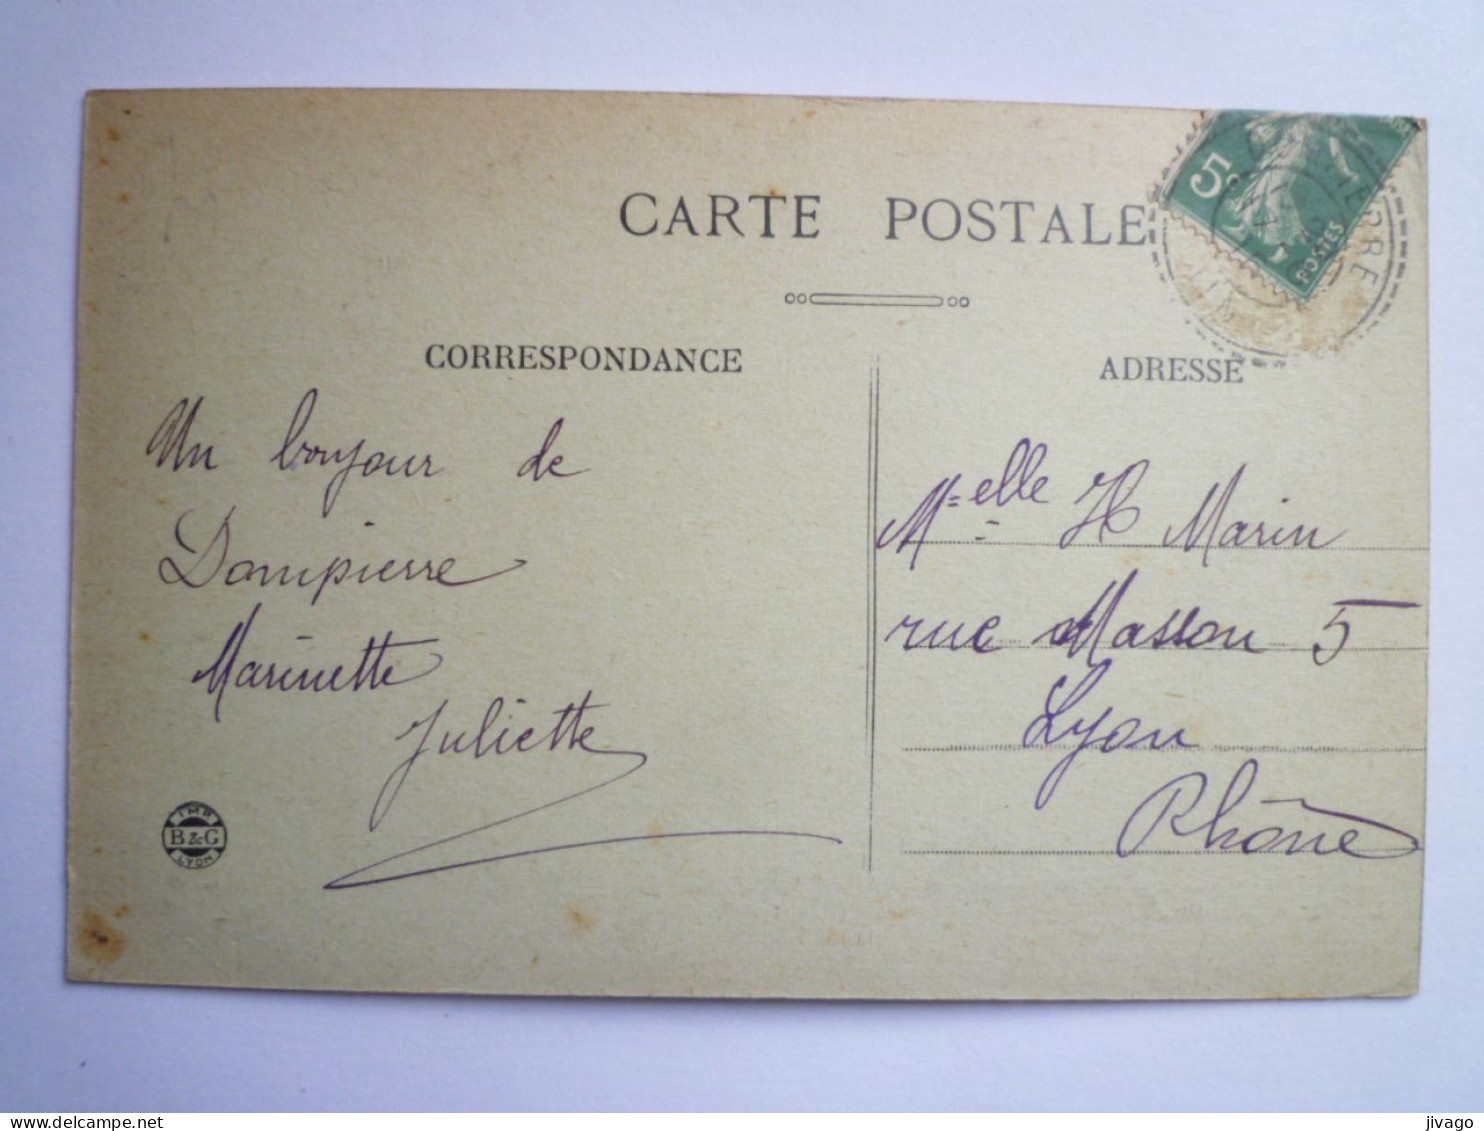 CARTE POSTALE
5c
POSTES
PIERRE
CORRESPONDANCE
ADRESSE
Un bonjour de
Dampierre
Marinette
Juliette
IMP
B&G
LYON
M=elle H Marin
rue Masson 5
Lyon
Rhône
delcampe.net
jivago